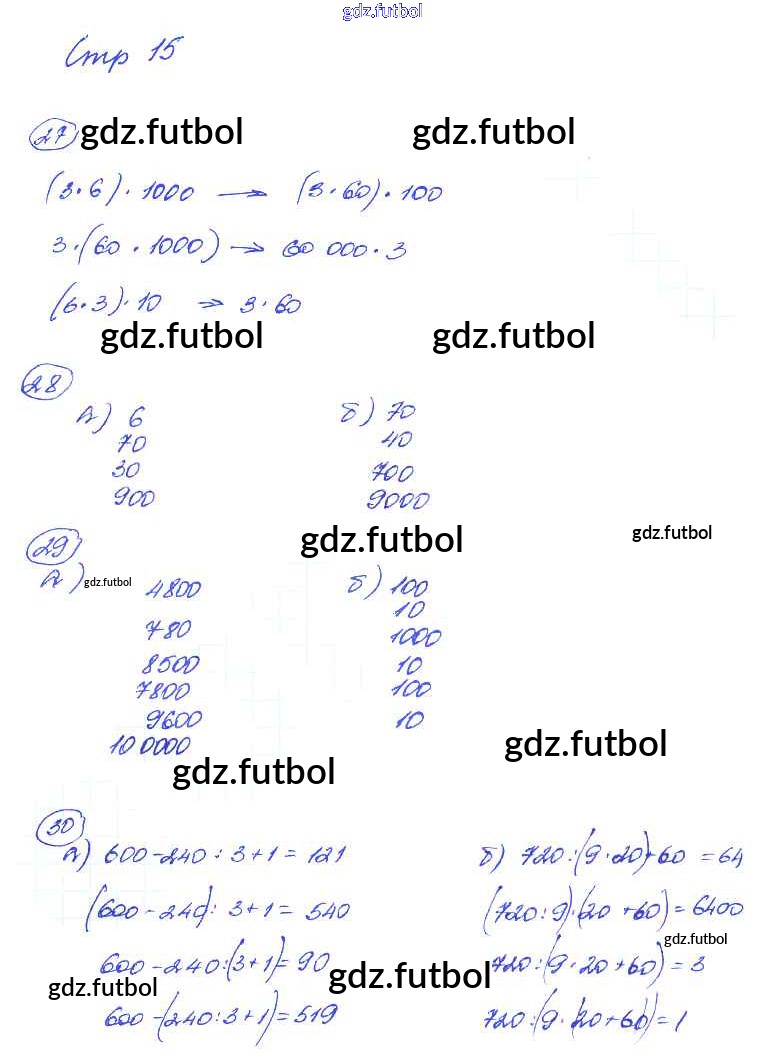 gdz.futbol
Стр 15
27 gdz.futbol gdz.futbol
(3·6)·1000 → (3·60)·100
3·(60·1000) → 60 000·3
(6·3)·10 → 3·60
gdz.futbol gdz.futbol
28
А) 6 б) 70
70 40
30 700
900 9000
29 gdz.futbol gdz.futbol
А) gdz.futbol 4800 б) 100
10
780 1000
8500 10
7800 100
9600 10
10 0000
gdz.futbol gdz.futbol
30
А) 600-240:3+1=121 б) 720:(9·20)+60=64
(600-240):3+1=540 (720:9)·(20+60)=6400
gdz.futbol
600-240:(3+1)=90 720:(9·20+60)=3
gdz.futbol gdz.futbol
600-(240:3+1)=519 720:(9·(20+60))=1